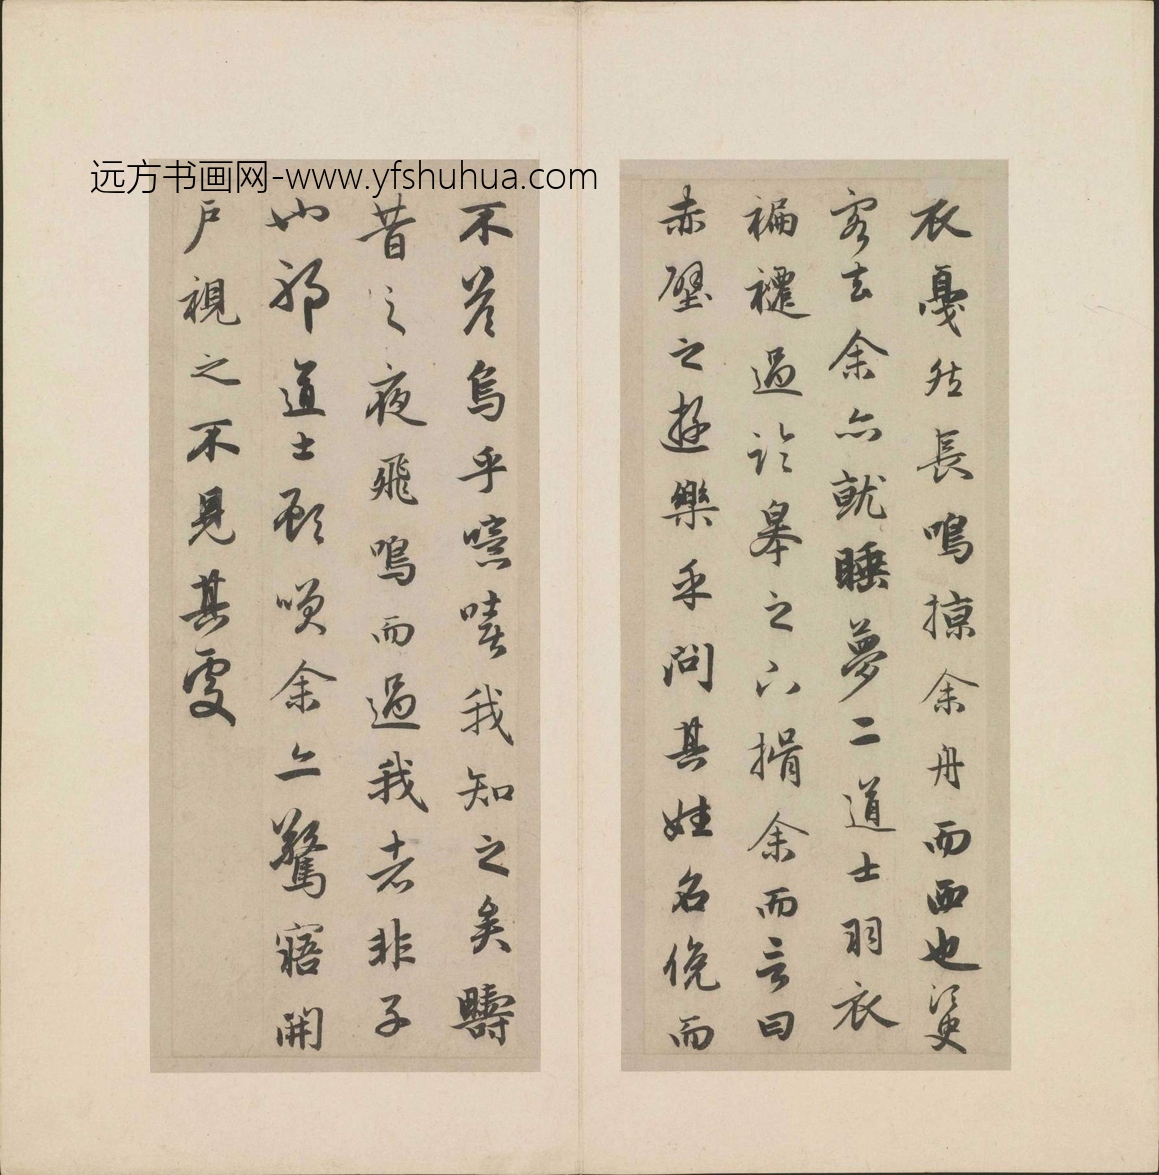 远方书画网-www.yfshuhua.com
衣戛然長鳴掠余舟而西也須臾
客去余亦就睡夢二道士羽衣
褊褼過臨皋之下揖余而言曰
赤壁之遊樂乎問其姓名俛而
不答烏乎噫嘻我知之矣疇
昔之夜飛鳴而過我者非子
也邪道士顧咲余亦驚寤開
戶視之不見其處